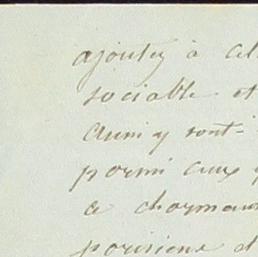 ajoutez à cel
sociable et
aussi y sont-
parmi eux
a charmant
parisiens et